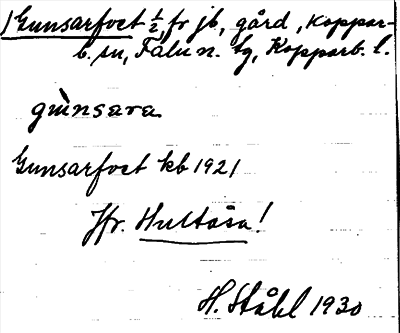 Gunsarfvet ½, fr jb, gård, Koppar-
b. sn, Falu n. tg, Kopparb. l.
gùnsara
Gunsarfvet kb 1921
Jfr. Hultåsa!
H. Ståhl 1930